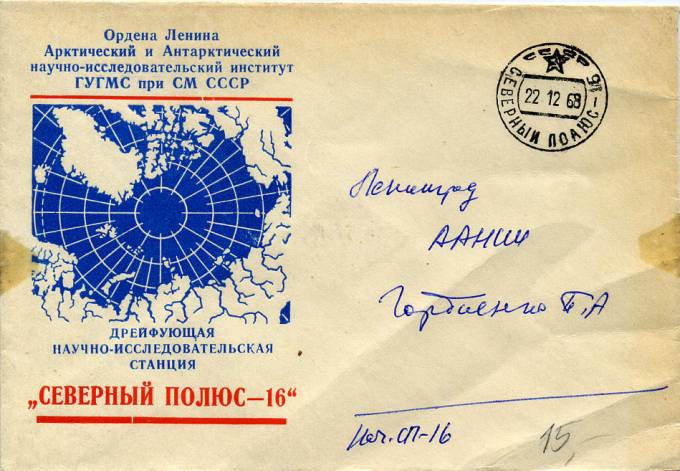 Ордена Ленина
Арктический и Антарктический
научно-исследовательский институт
ГУГМС при СМ СССР
ДРЕЙФУЮЩАЯ
НАУЧНО-ИССЛЕДОВАТЕЛЬСКАЯ
СТАНЦИЯ
„СЕВЕРНЫЙ ПОЛЮС—16“
СССР
СЕВЕРНЫЙ ПОЛЮС-16
22 12 68
Ленинград
ААНИИ
Горбиенко П.А
Нач. СП-16
15,-